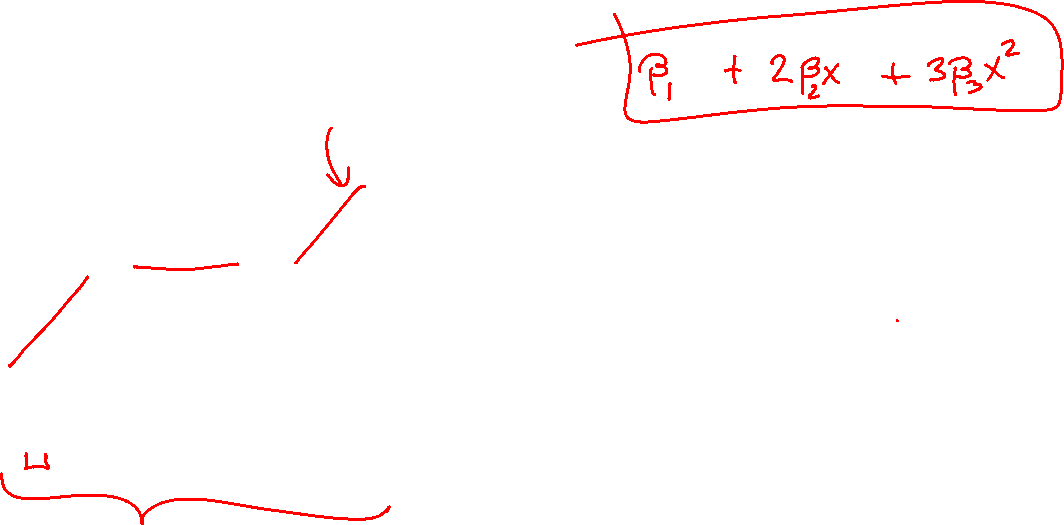 β₁ + 2β₂x + 3β₃x²